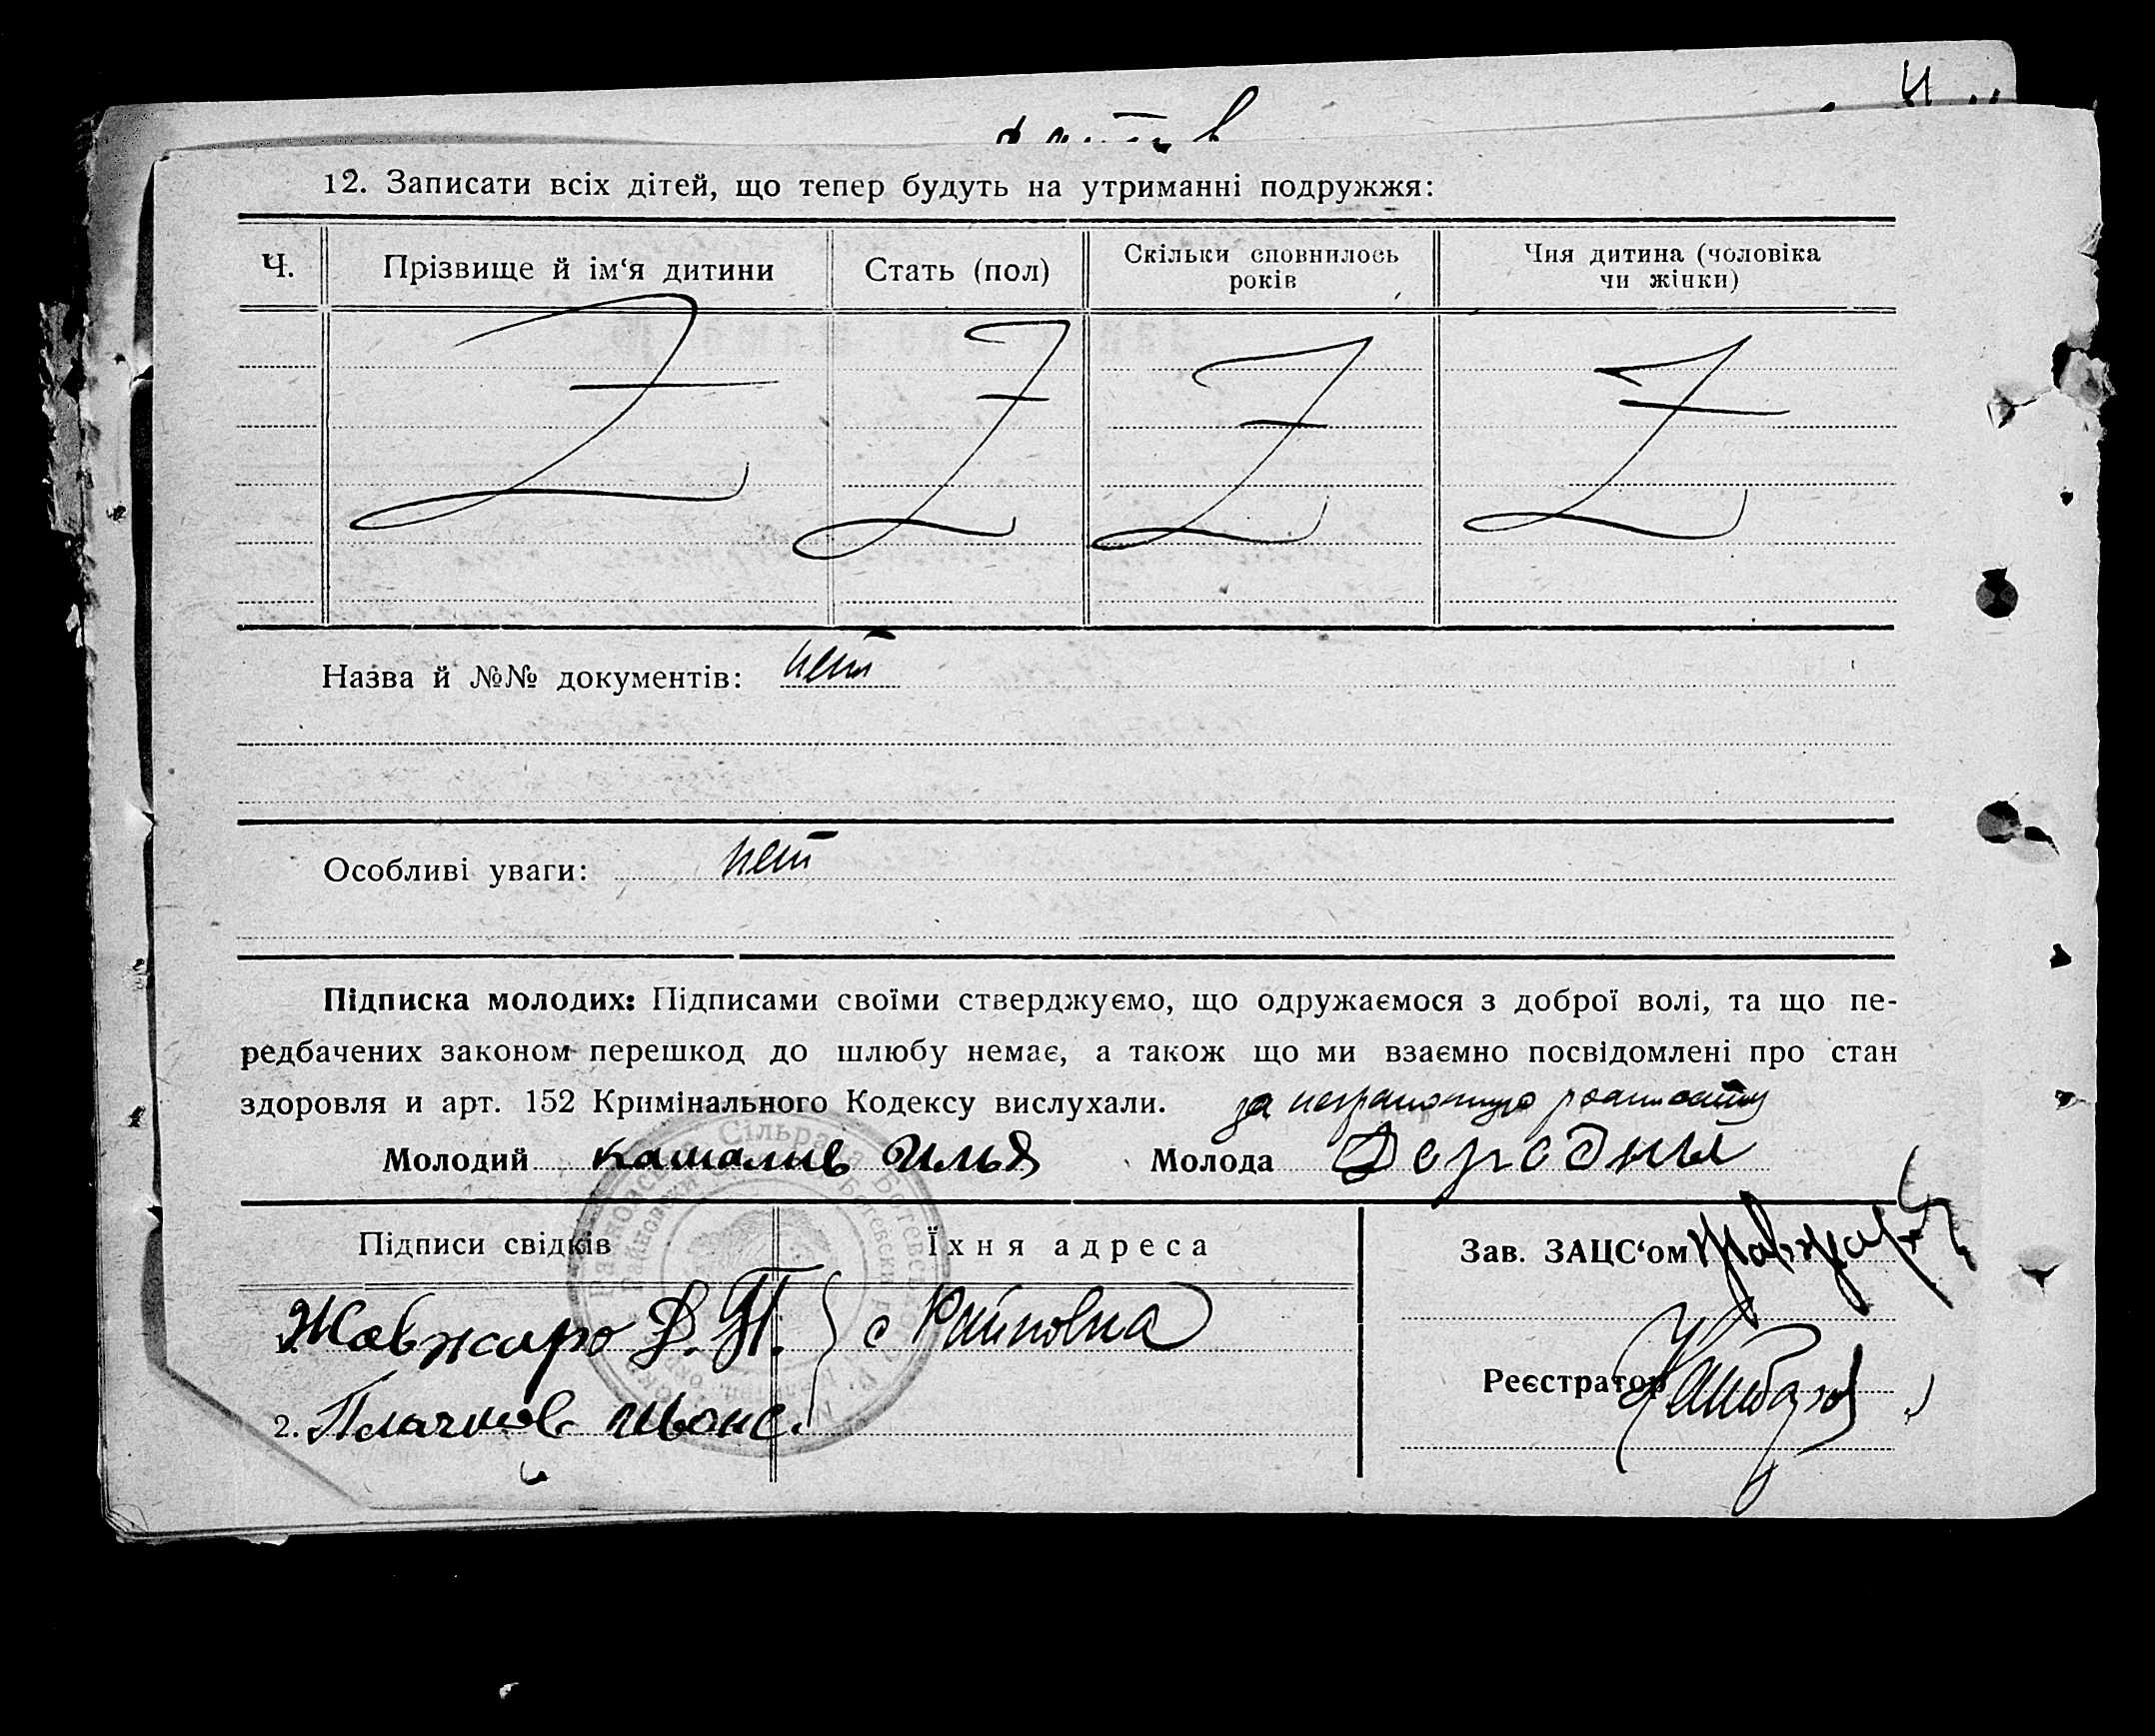 12. Записати всіх дітей, що тепер будуть на утриманні подружжя:
Ч. Прізвище й ім‘я дитини Стать (пол) Скільки сповнилось років Чия дитина (чоловіка чи жінки)
Z Z Z Z
Назва й №№ документів: нет
Особливі уваги: нет
Підписка молодих: Підписами своїми стверджуємо, що одружаємося з доброї волі, та що пе-
редбачених законом перешкод до шлюбу немає, а також що ми взаємно посвідомлені про стан
здоровля и арт. 152 Кримінального Кодексу вислухали. за неграмотную
Молодий Илья Молода
Підписи свідків Їхня адреса Зав. ЗАЦС‘ом
Жовжаро Д. П. с Райновка
Реєстратор
2. Плачков